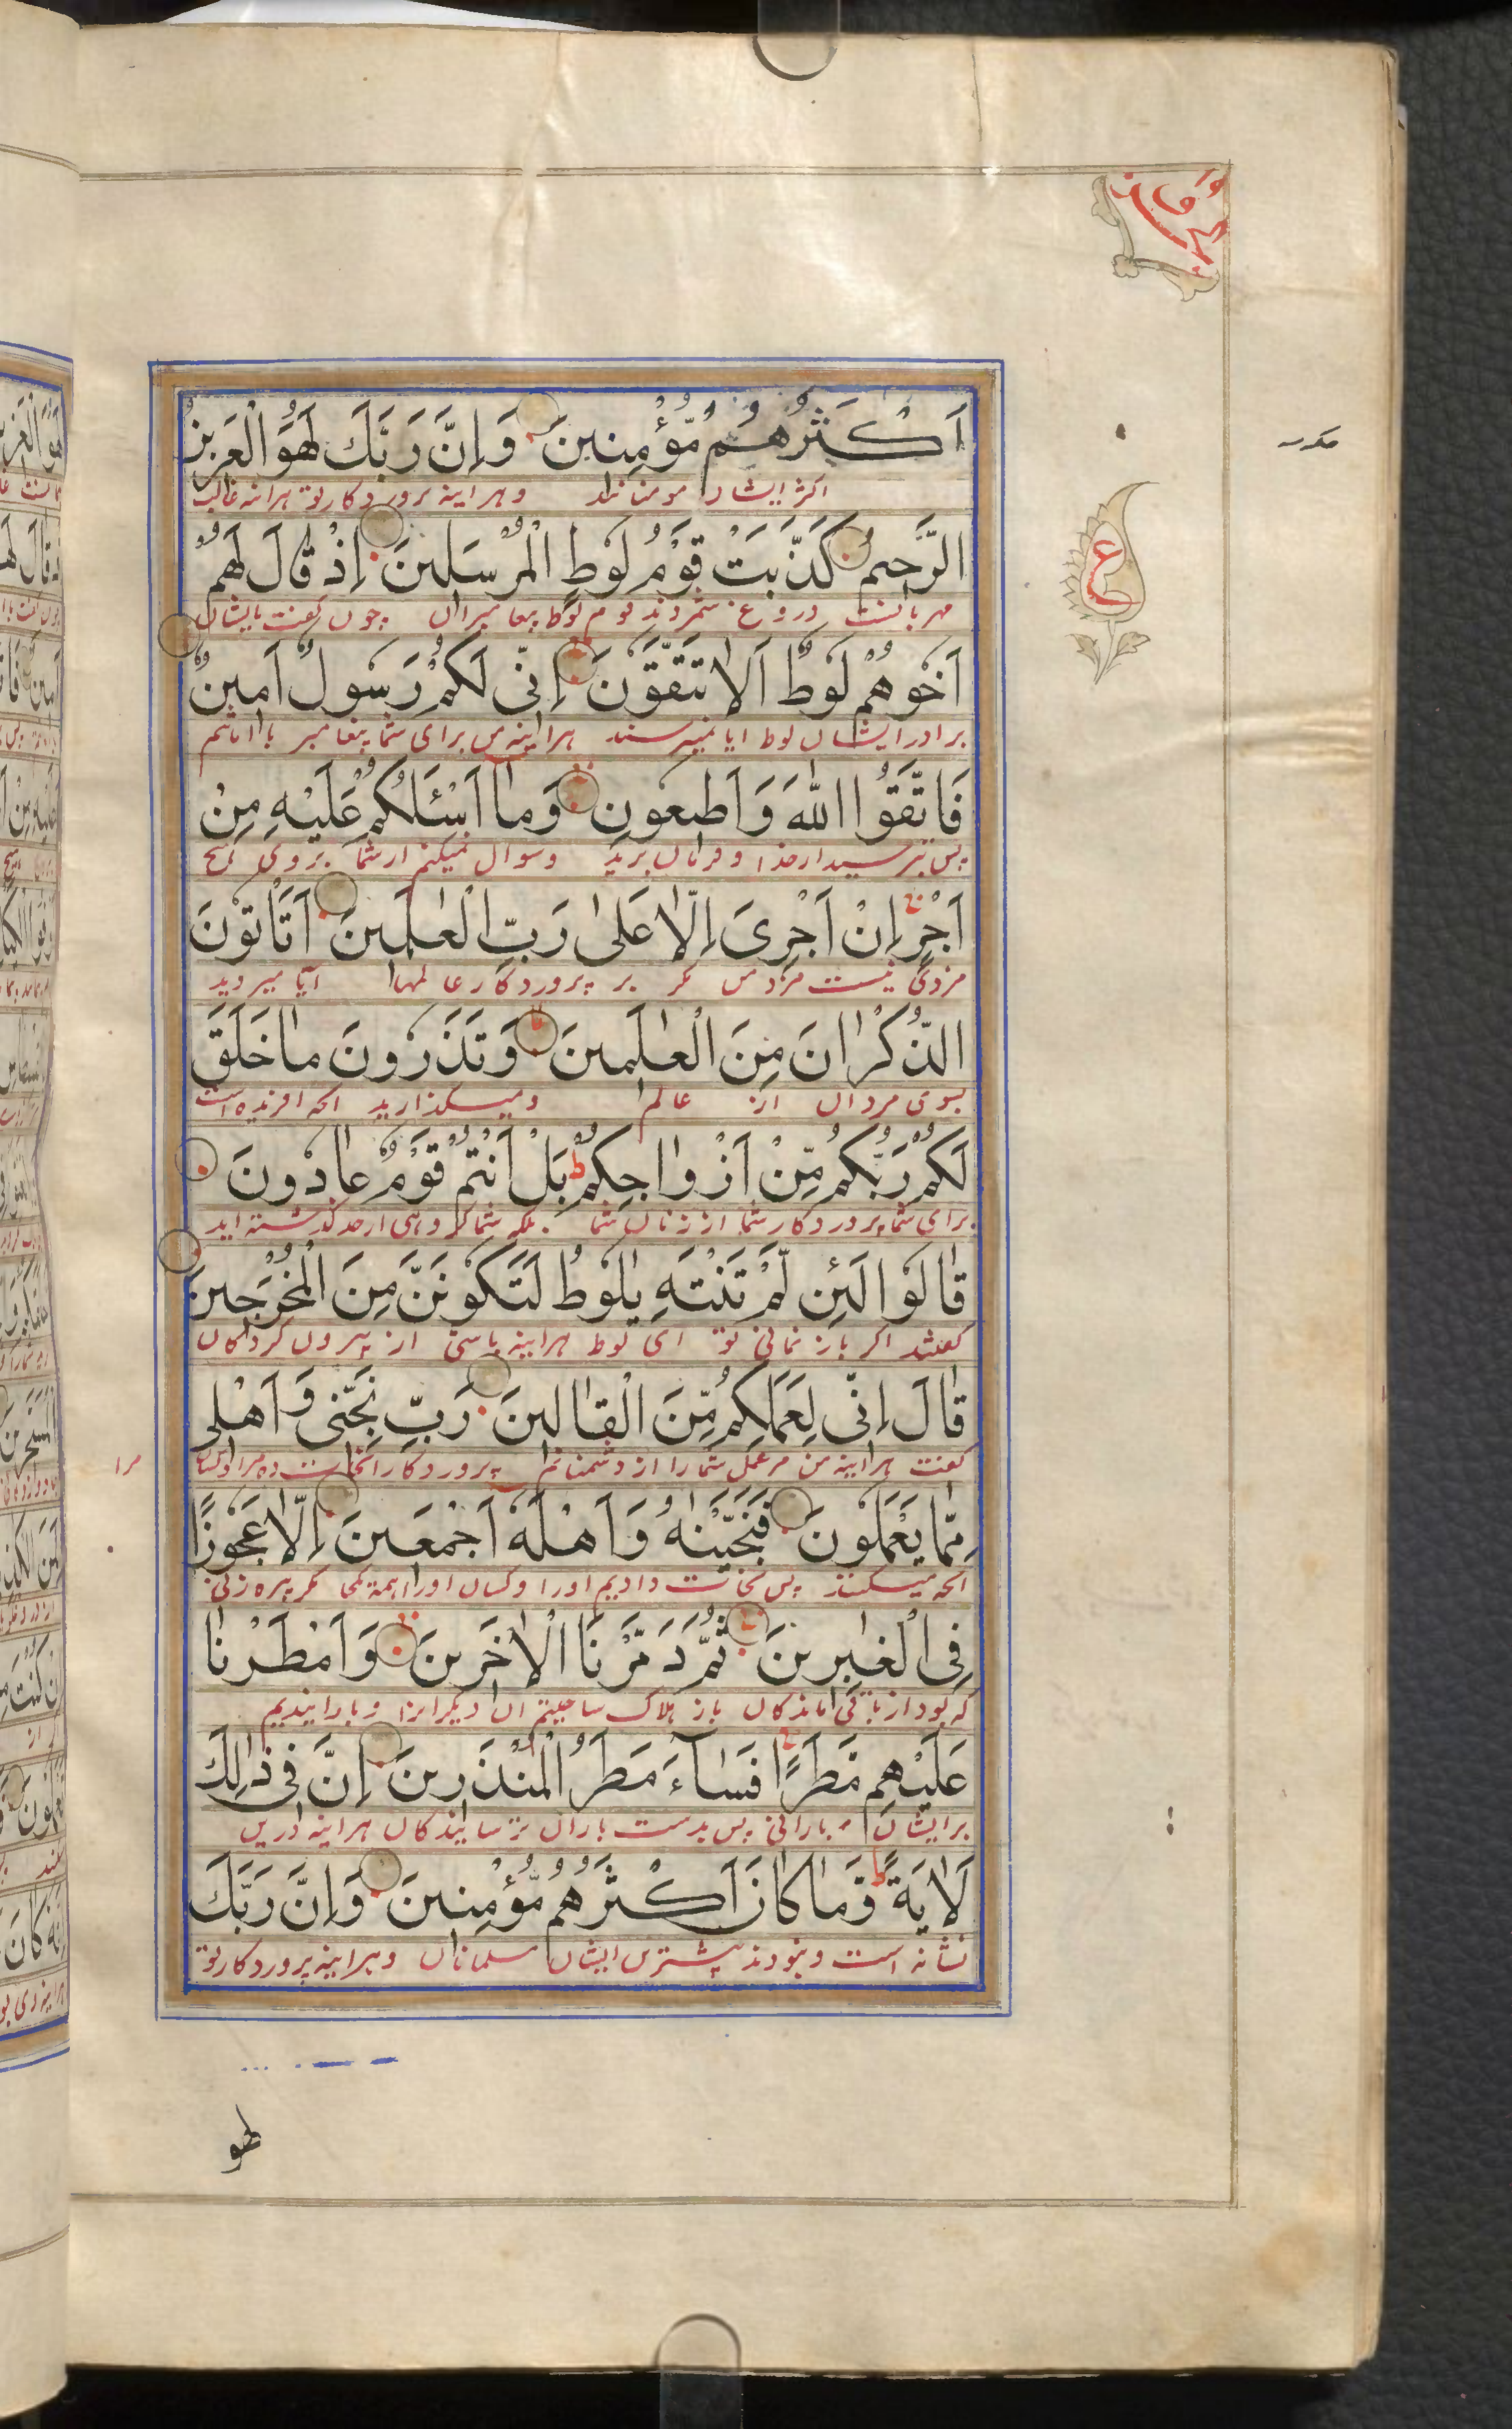 اَكْثَرُهُمْ مُّؤْمِنينَ وَاِنَّ رَبَّكَ لَهُوَ الْعَزيزُ
اکثر ایشان مومنان و هراینه پروردکار تو هراینه غالب
الرَّحيمُ كَذَّبَتْ قَوْمُ لُوطٍ الْمُرْسَلينَ اِذْ قَالَ لَهُمْ
مهربانست دروغ شمردند قوم لوط پیغامبران چون کفت بایشان
اَخُوهُمْ لُوطٌ اَلَا تَتَّقُونَ اِنّى لَكُمْ رَسُولٌ اَمينٌ
برادر ایشان لوط ایا نمیترسند هراینه من برای شما پیغامبر با امانتم
فَاتَّقُوا اللّٰهَ وَاَطيعُونِ وَمَا اَسْئَلُكُمْ عَلَيْهِ مِنْ
پس بترسید از خدا و فرمان برید و سوال نمیکنم از شما بروی هیچ
اَجْرٍ اِنْ اَجْرِىَ اِلَّا عَلٰى رَبِّ الْعٰلَمينَ اَتَأْتُونَ
مزدی نیست مزد من مکر بر پروردکار عالمها آیا میروید
الذُّكْرَانَ مِنَ الْعٰلَمينَ وَتَذَرُونَ مَا خَلَقَ
بسوی مردان از عالم و میکذارید انچه افریده است
لَكُمْ رَبُّكُمْ مِّنْ اَزْوَاجِكُمْ بَلْ اَنْتُمْ قَوْمٌ عَادُونَ
برای شما پروردکار شما از زنان شما بلکه شما کروهی از حد کذشته اید
قَالُوا لَئِنْ لَّمْ تَنْتَهِ يٰلُوطُ لَتَكُونَنَّ مِنَ الْمُخْرَجينَ
کفتند اکر باز نمانی تو ای لوط هراینه باشی از بیرون کردکان
قَالَ اِنّى لِعَمَلِكُمْ مِّنَ الْقَالينَ رَبِّ نَجِّنى وَاَهْلى
کفت هراینه من مر عمل شما را از دشمنانم پروردکارا نجات ده مرا و کسان
مرا
مِمَّا يَعْمَلُونَ فَنَجَّيْنٰهُ وَاَهْلَهُ اَجْمَعينَ اِلَّا عَجُوزًا
انچه میکنند پس نجات دادیم او را و کسان او را همه یکجا مکر پیره زنی
فِى الْغٰبِرينَ ثُمَّ دَمَّرْنَا الْاٰخَرينَ وَاَمْطَرْنَا
که بود از باقی ماندکان باز هلاک ساختیم آن دیکرانرا و بارانیدیم
عَلَيْهِمْ مَّطَرًا فَسَاءَ مَطَرُ الْمُنْذَرينَ اِنَّ فى ذٰلِكَ
برایشان بارانی پس بدست باران ترسانیدکان هراینه درین
لَاٰيَةً وَمَا كَانَ اَكْثَرُهُمْ مُّؤْمِنينَ وَاِنَّ رَبَّكَ
نشانه است و نبودند بیشترین ایشان مسلمانان و هراینه پروردکار تو
لهو
ع